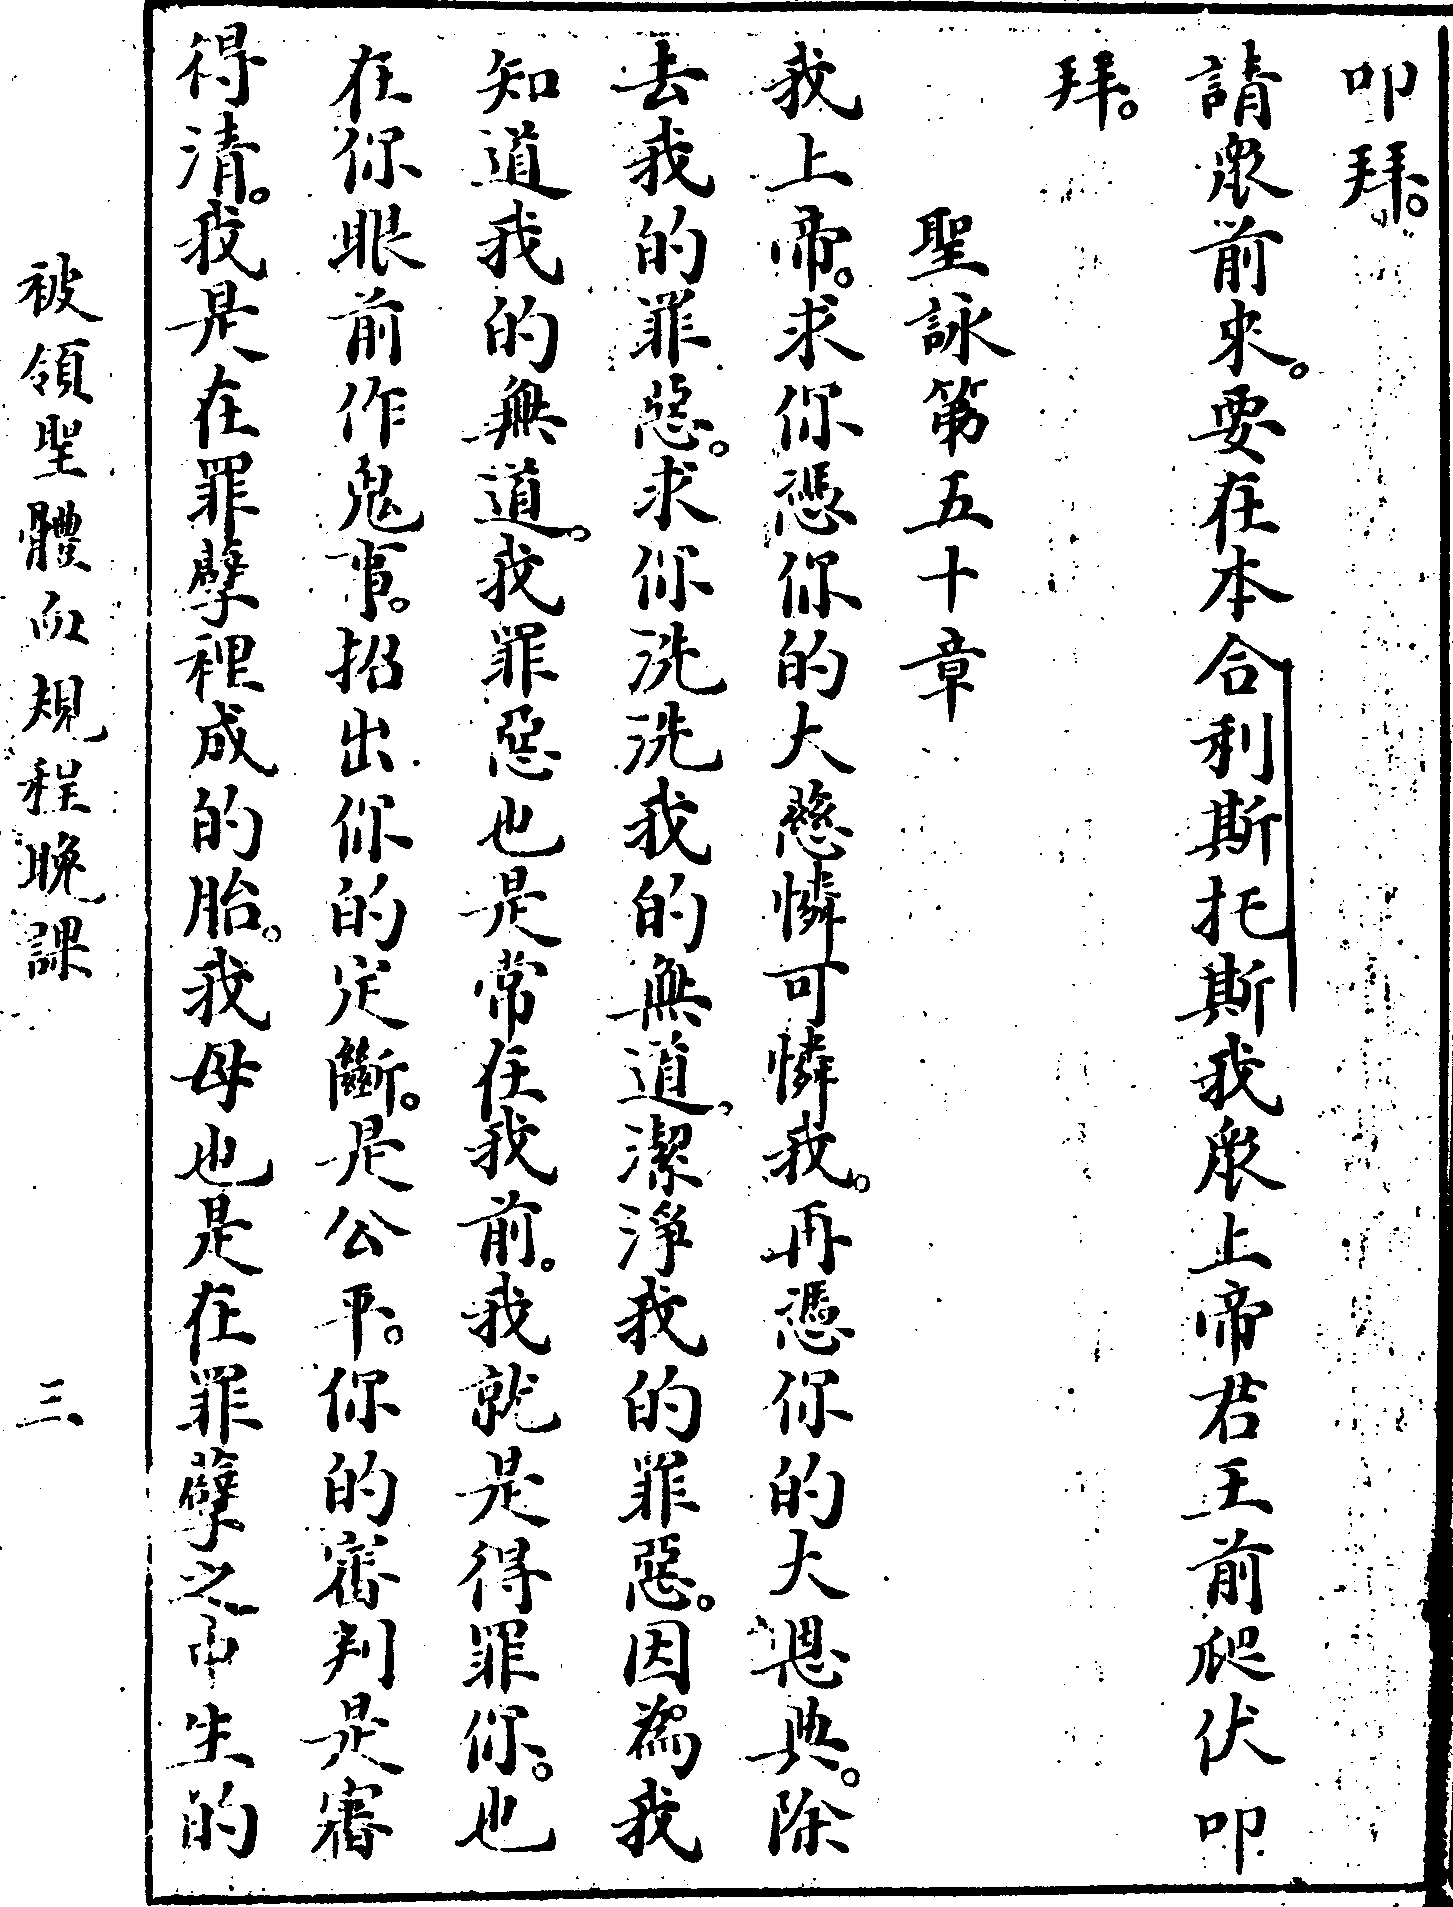 叩拜。
請眾前來。要在本合利斯托斯我眾上帝君王前爬伏叩
拜。
聖詠第五十章
我上帝。求你憑你的大慈憐可憐我。再憑你的大恩典。除
去我的罪惡。求你洗洗我的無道。潔淨我的罪惡。因為我
知道我的無道。我罪惡也是常在我前。我就是得罪你。也
在你眼前作鬼事。招出你的定斷。是公平。你的審判是審
得清。我是在罪孽裡成的胎。我母也是在罪孽之中生的
被領聖體血規程晚課 三